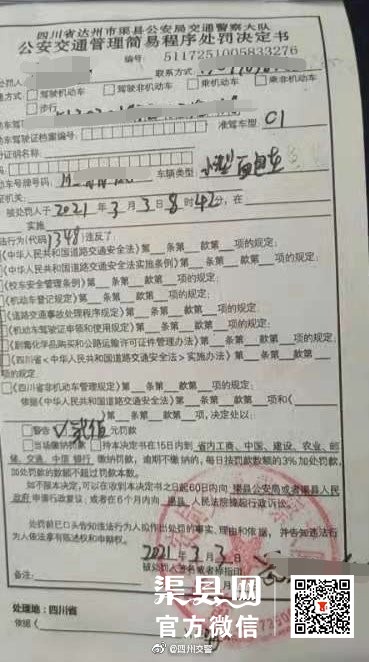 四川省达州市渠县公安局交通警察大队
公安交通管理简易程序处罚决定书
编号:5117251005833276
处罚人 联系方式
通方式: 驾驶机动车 驾驶非机动车 乘机动车 乘非机动车
步行
动车驾驶证档案编号: 准驾车型 C1
份证明名称
动车号牌号码 车辆类型: 小型面包车
证机关:
被处罚人于 2021 年 3 月 3 日 8 时 42 分,在
实施
法行为(代码) 1348 违反了:
《中华人民共和国道路交通安全法》第 条第 款第 项的规定;
《中华人民共和国道路交通安全法实施条例》第 条第 款第 项的规定;
《校车安全管理条例》第 条第 款第 项的规定;
《机动车登记规定》第 条第 款第 项的规定;
《道路交通事故处理程序规定》第 条第 款第 项的规定;
《机动车驾驶证申领和使用规定》第 条第 款第 项的规定;
《剧毒化学品购买和公路运输许可证件管理办法》第 条第 款第 项的规定;
《四川省<中华人民共和国道路交通安全法>实施办法》第 条第 款第 项的规定;
《四川省非机动车管理规定》第 条第 款第 项的规定;
依据《中华人民共和国道路交通安全法》第 条第 款第 项和(
)第 条第 款第 项,决定处以:
警告 元罚款
当场缴纳罚款 持本决定书在15日内到 省内工商、中国、建设、农业、邮
储、交通、中信 银行 缴纳罚款。逾期不缴纳的,每日按罚款数额的3%加处罚款,
加处罚款的数额不超过罚款本数。
如不服本决定,可以在收到本决定书之日起60日内向 渠县公安局或者渠县人民
政府 申请行政复议;或者在6个月内向 渠县 人民法院提起行政诉讼。
处罚前已口头告知违法行为人拟作出处罚的事实、理由和依据,并告知违法行
为人依法享有陈述权和申辩权。
2021 年 3 月 3 日
被处罚人签名或者捺指印
备注:
处理地:四川省
依据(
渠县网
官方微信
@四川交警